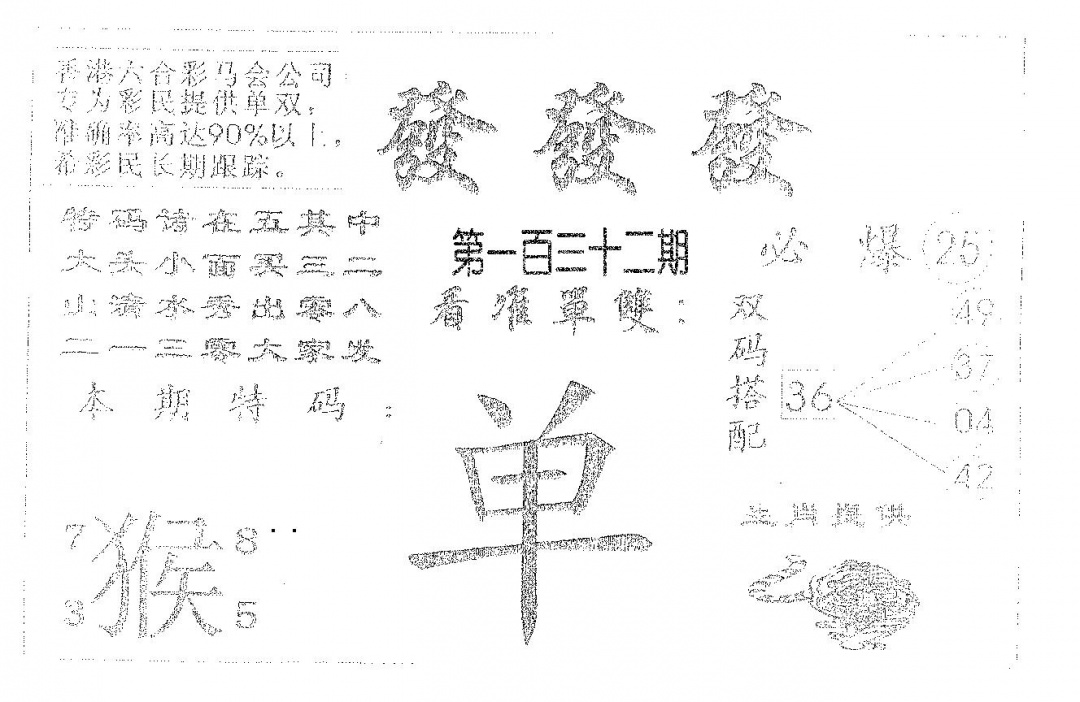 香港六合彩马会公司
专为彩民提供单双，
准确率高达90%以上，
希彩民长期跟踪。
發發發
特码请在五其中
大头小面买三二
山清水秀出零八
二一三零大家发
本期特码：
第一百三十二期
看准單雙：
单
必爆25
双码搭配
36
49
37
04
42
7 8
猴
3 5
提供